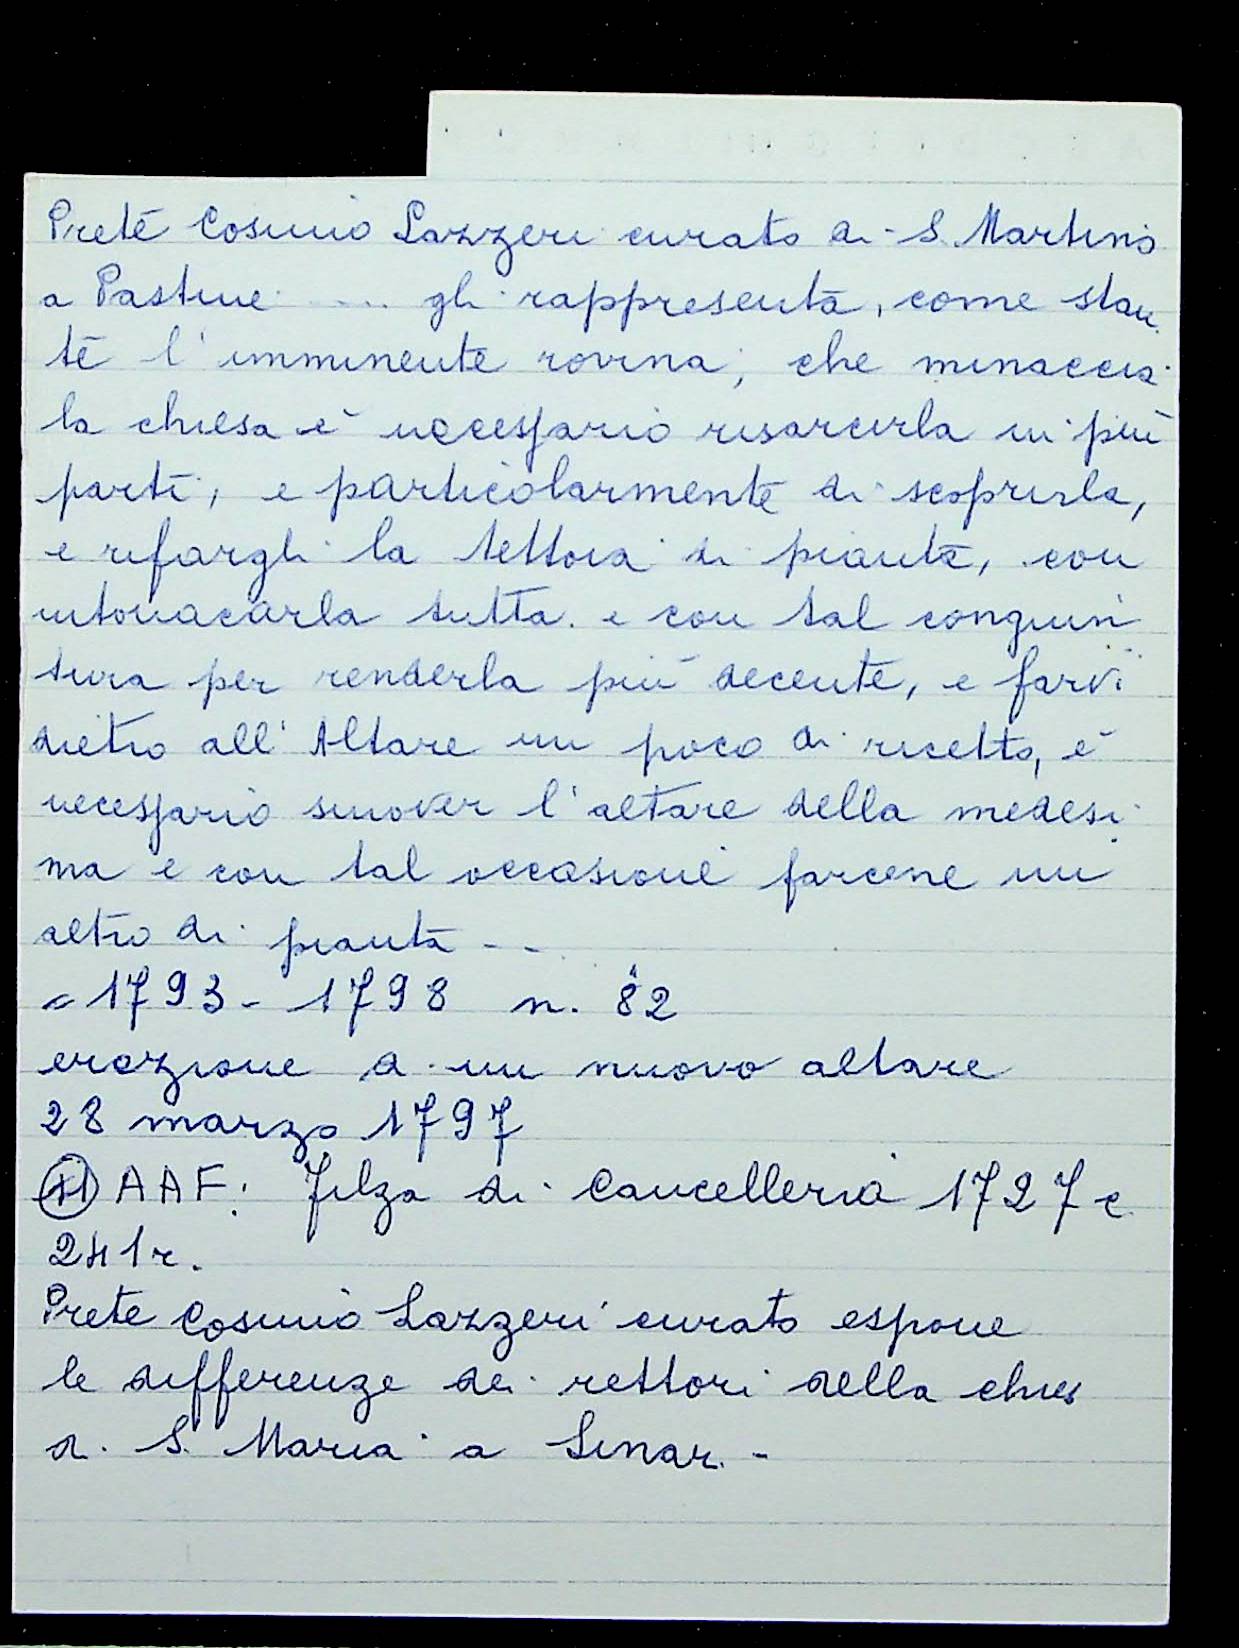 Prete Cosimo Lazzeri curato di S. Martino
a Pastine .... gli rappresenta, come stan
te l'imminente rovina, che minaccia
la chiesa è necessario risarcirla in più
parti, e particolarmente di scoprirla,
e rifargli la tettoia di pianta, con
intonacarla tutta. e con tal congiun
tura per renderla più decente, e farvi
dietro all'Altare un poco di ricetto, è
necessario smover l'altare della medesi
ma e con tal occasione farcene un
altro di pianta - -
= 1793 - 1798 n. 82
erezione di un nuovo altare
28 marzo 1797
AAF: Filza di Cancelleria 1727 c.
241r.
Prete Cosimo Lazzeri curato espone
le differenze dei rettori della chies
di S. Maria a -